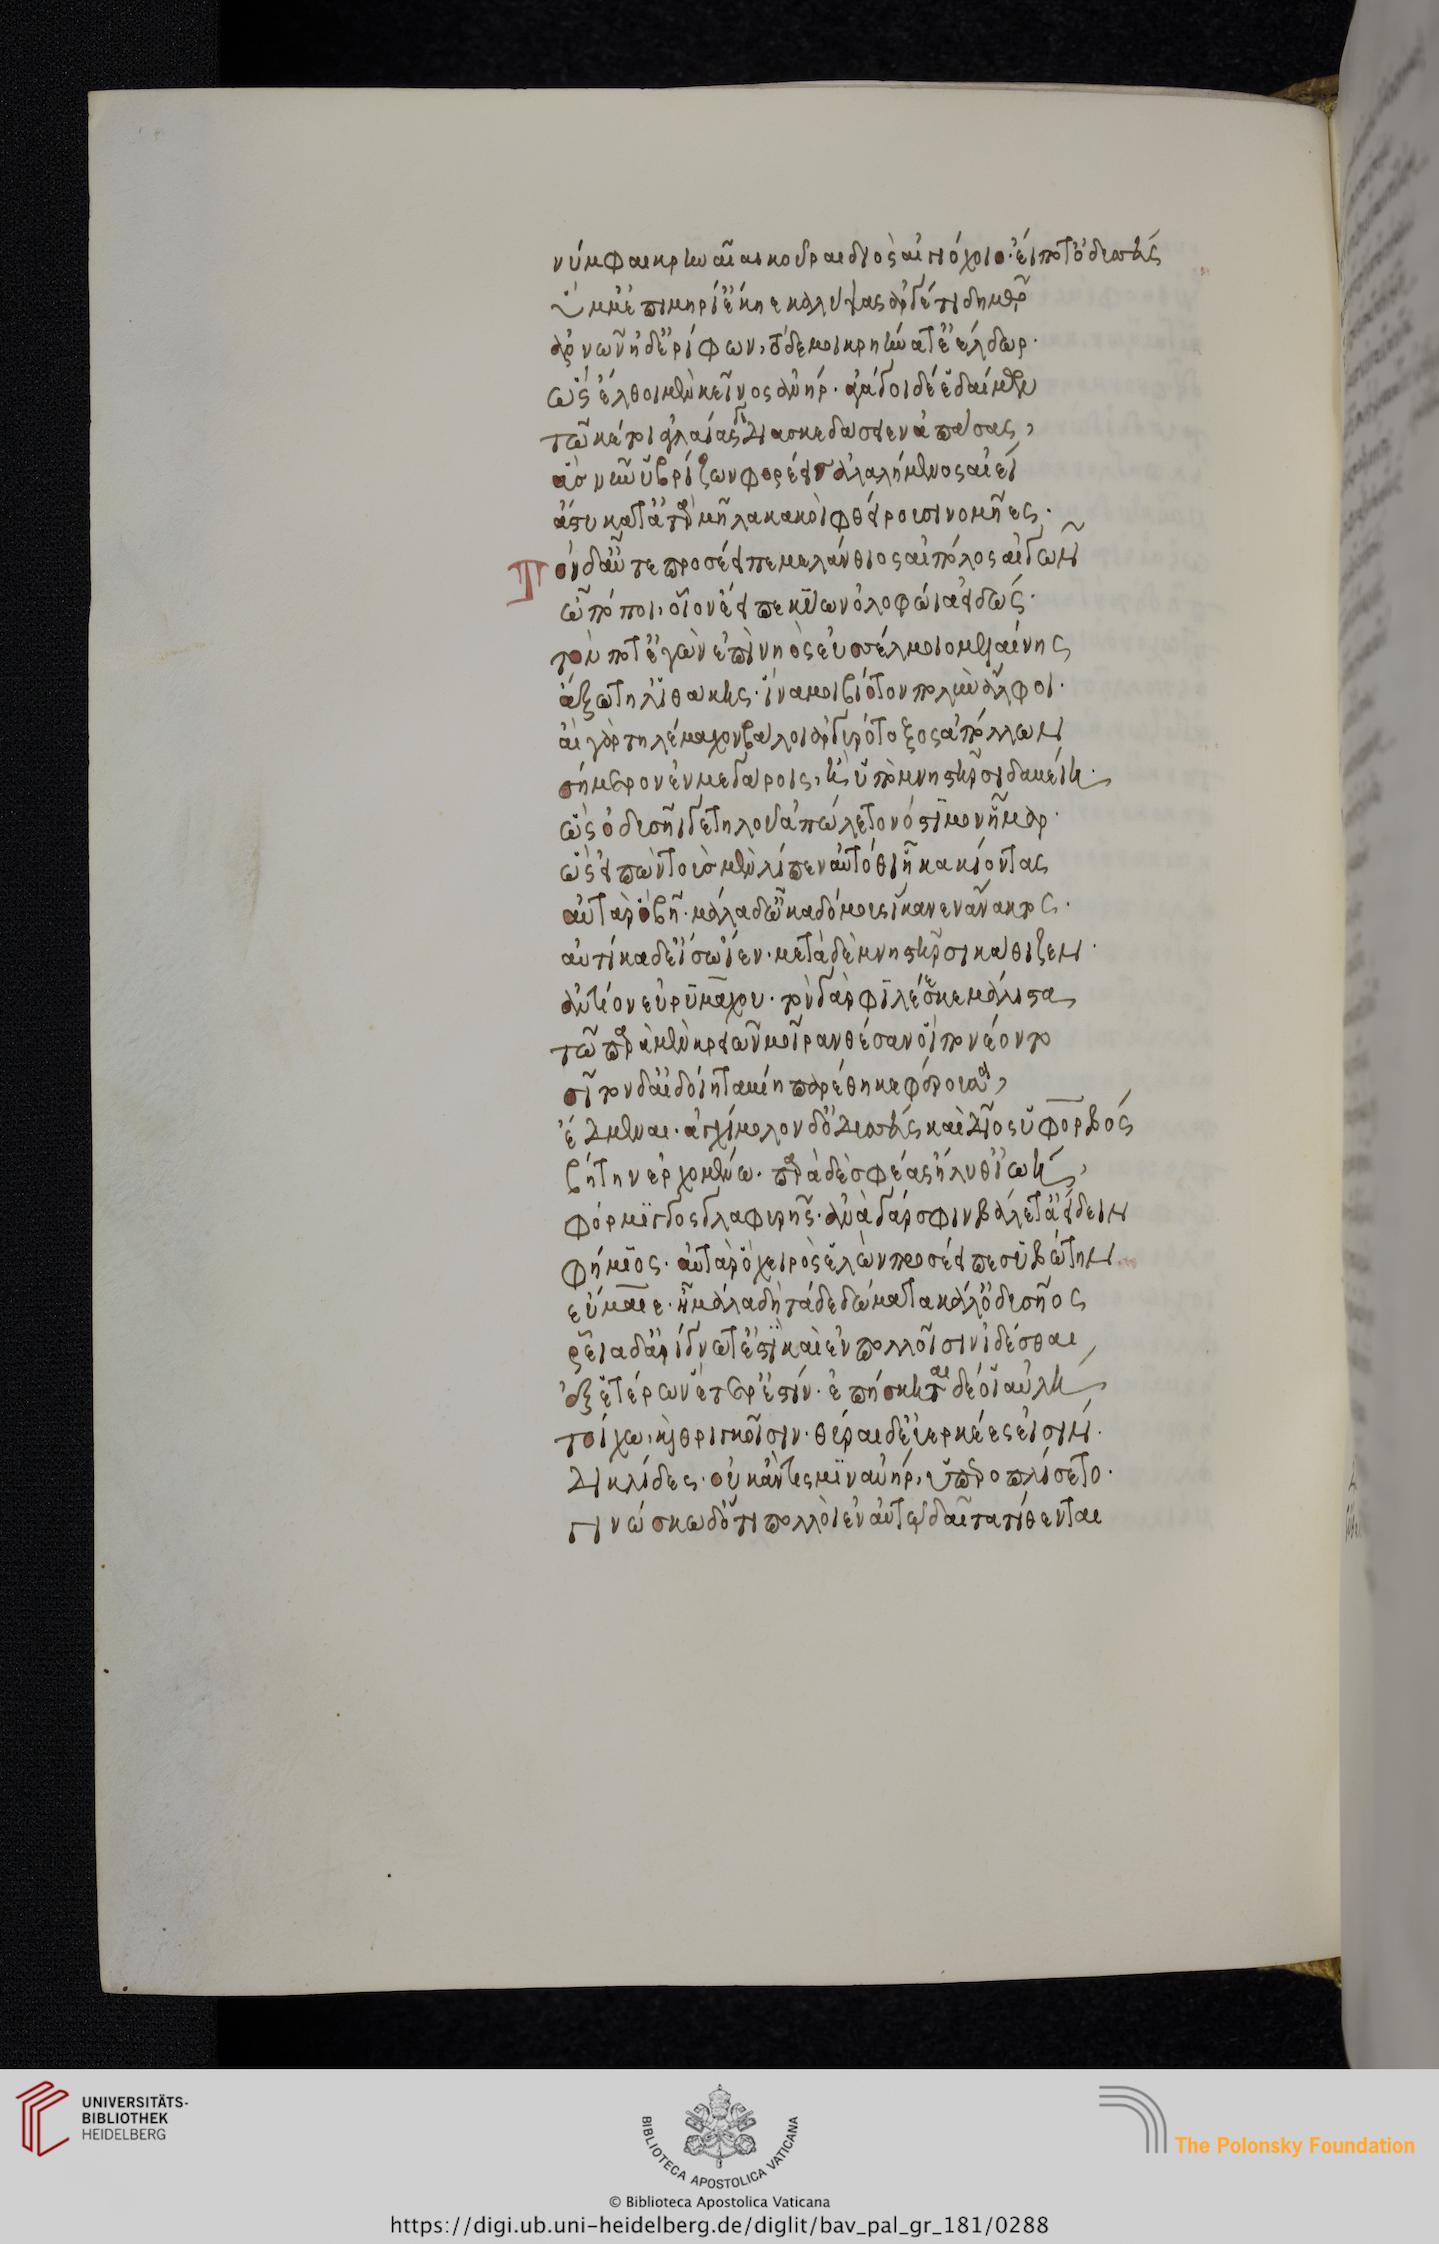 νύμφαι κρηναῖαι κοῦραι διὸς αἰγιόχοιο· εἴ ποτ' ὀδυσσεὺς
ὔμμ' ἐπὶ μηρί' ἔκηε καλύψας ἀργέτι δημῷ
ἀρνῶν ἠδ' ἐρίφων, τόδε μοι κρηήνατ' ἐέλδωρ·
ὡς ἔλθοι μὲν κεῖνος ἀνήρ· ἀγάγοι δέ ἑ δαίμων
τῶ κέ τοι ἀγλαΐας γε διασκεδάσειεν ἁπάσας,
ἃς νῦν ὑβρίζων φορέεις ἀλαλήμενος αἰεὶ
ἄστυ κατ' αὐτὰρ μῆλα κακοὶ φθείρουσι νομῆες·
Τὸν δ' αὖτε προσέειπε μελάνθιος αἰπόλος αἰγῶν
ὢ πόποι, οἷον ἔειπε κύων ὀλοφώια εἰδώς·
τόν ποτ' ἐγὼν ἐπὶ νηὸς ἐυσσέλμοιο μελαίνης
ἄξω τῆλ' ἰθάκης· ἵνα μοι βίοτον πολὺν ἄλφοι·
αἲ γὰρ τηλέμαχον βάλοι ἀργυρότοξος ἀπόλλων
σήμερον ἐν μεγάροις, ἢ ὑπὸ μνηστῆρσι δαμείη·
ὡς ὀδυσῆί γε τηλοῦ ἀπώλετο νόστιμον ἦμαρ·
ὣς εἰπὼν τοὺς μὲν λίπεν αὐτόθι ἦκα κιόντας
αὐτὰρ ὁ βῆ· μάλα δ' ὦκα δόμους ἵκανεν ἄνακτος·
αὐτίκα δ' εἴσω ἴεν· μετὰ δὲ μνηστῆρσι κάθιζεν·
ἀντίον εὐρυμάχου· τὸν γὰρ φιλέεσκε μάλιστα
τῶ πάρα μὲν κρειῶν μοῖραν θέσαν οἳ πονέοντο
σῖτον δ' αἰδοίη ταμίη παρέθηκε φέρουσα,
ἔδμεναι· ἀγχίμολον δ' ὀδυσεὺς καὶ δῖος ὑφορβὸς
στήτην ἐρχομένω· παρὰ δὲ σφέας ἤλυθ' ἰωὴ,
φόρμιγγος γλαφυρῆς· ἀνὰ γάρ σφιν βάλετ' ἀείδειν
φήμιος· αὐτὰρ ὁ χειρὸς ἑλὼν προσέειπε συβώτην
εὔμαιε· ἦ μάλα δὴ τάδε δώματα κάλ' ὀδυσῆος
ῥεῖα δ' ἀρίγνωτ' ἐστὶ καὶ ἐν πολλοῖσιν ἰδέσθαι
ἐξ ἑτέρων ἕτερ' ἐστίν· ἐπήσκηται δέ οἱ αὐλὴ
τοίχῳ, καὶ θριγκοῖσιν· θύραι δ' εὐερκέες εἰσὶν·
δικλίδες· οὐκ ἄν τις μιν ἀνὴρ, ὑπεροπλίσσετο·
γινώσκω δ' ὅτι πολλοὶ ἐν αὐτῷ δαῖτα τίθενται
UNIVERSITÄTS-
BIBLIOTHEK
HEIDELBERG
BIBLIOTECA APOSTOLICA VATICANA
The Polonsky Foundation
© Biblioteca Apostolica Vaticana
https://digi.ub.uni-heidelberg.de/diglit/bav_pal_gr_181/0288